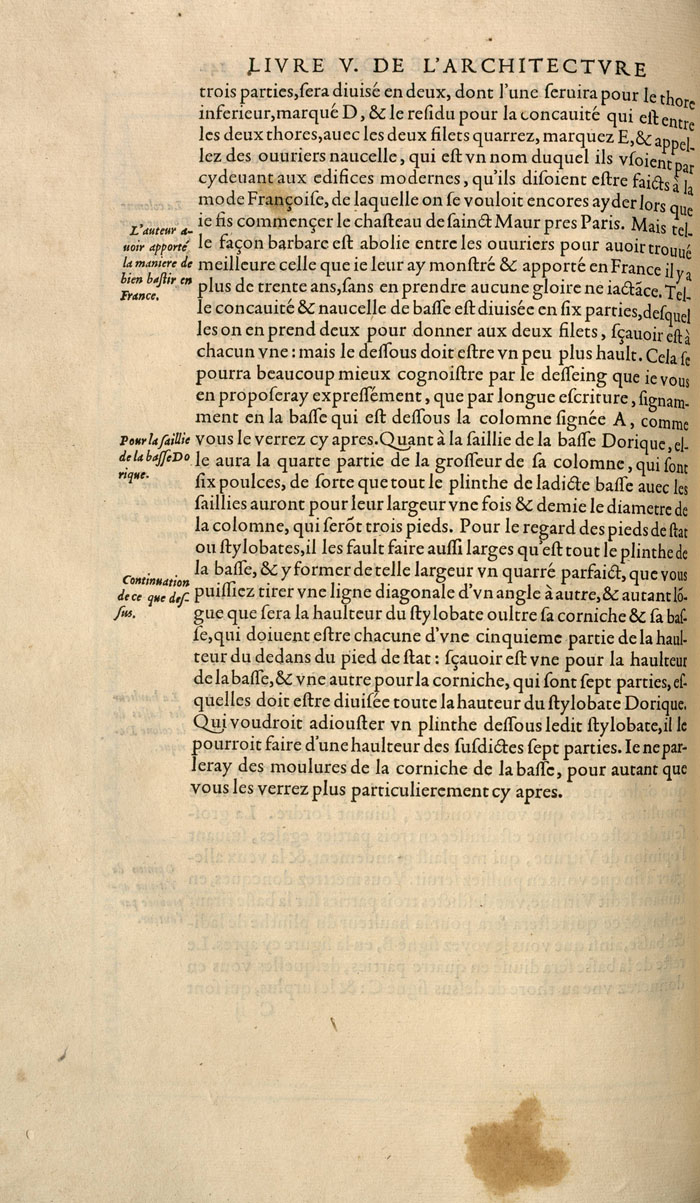 LIVRE V. DE L'ARCHITECTVRE
trois parties,ſera diuisé en deux, dont l'une ſeruira pour le thore
inferieur,marqué D, & le reſidu pour la concauité qui eſt entre
les deux thores,auec les deux filets quarrez, marquez E,& appel-
lez des ouuriers naucelle, qui eſt vn nom duquel ils vſoient par
cydeuant aux edifices modernes, qu'ils diſoient eſtre faicts à la
mode Françoiſe, de laquelle on ſe vouloit encores ayder lors que
ie fis commençer le chaſteau de ſainct Maur pres Paris. Mais tel-
le façon barbare eſt abolie entre les ouuriers pour auoir trouué
meilleure celle que ie leur ay monſtré & apporté en France il y a
plus de trente ans,ſans en prendre aucune gloire ne iactãce. Tel-
le concauité & naucelle de baſſe eſt diuisée en ſix parties,deſquel
les on en prend deux pour donner aux deux filets, ſçauoir eſt à
chacun vne: mais le deſſous doit eſtre vn peu plus hault. Cela ſe
pourra beaucoup mieux cognoiſtre par le deſſeing que ie vous
en propoſeray expreſſément, que par longue eſcriture, ſignam-
ment en la baſſe qui eſt deſſous la colomne ſignée A, comme
vous le verrez cy apres.Quant à la ſaillie de la baſſe Dorique, el-
le aura la quarte partie de la groſſeur de ſa colomne, qui ſont
ſix poulces, de ſorte que tout le plinthe de ladicte baſſe auec les
ſaillies auront pour leur largeur vne fois & demie le diametre de
la colomne, qui ſerõt trois pieds. Pour le regard des pieds de ſtat
ou ſtylobates,il les fault faire auſſi larges qu'eſt tout le plinthe de
la baſſe, & y former de telle largeur vn quarré parfaict, que vous
puiſſiez tirer vne ligne diagonale d'vn angle à autre,& autant lõ-
gue que ſera la haulteur du ſtylobate oultre ſa corniche & ſa baſ-
ſe,qui doiuent eſtre chacune d'vne cinquieme partie de la haul-
teur du dedans du pied de ſtat: ſçauoir eſt vne pour la haulteur
de la baſſe,& vne autre pour la corniche, qui ſont ſept parties, eſ-
quelles doit eſtre diuiſée toute la hauteur du ſtylobate Dorique.
Qui voudroit adiouſter vn plinthe deſſous ledit ſtylobate,il le
pourroit faire d'une haulteur des ſuſdictes ſept parties. Ie ne par-
leray des moulures de la corniche de la baſſe, pour autant que
vous les verrez plus particulierement cy apres.
L'auteur a-
uoir apporté
la maniere de
bien baſtir en
France.
Pour la ſaillie
de la baſſe Do
rique.
Continuation
de ce que deſ-
ſus.